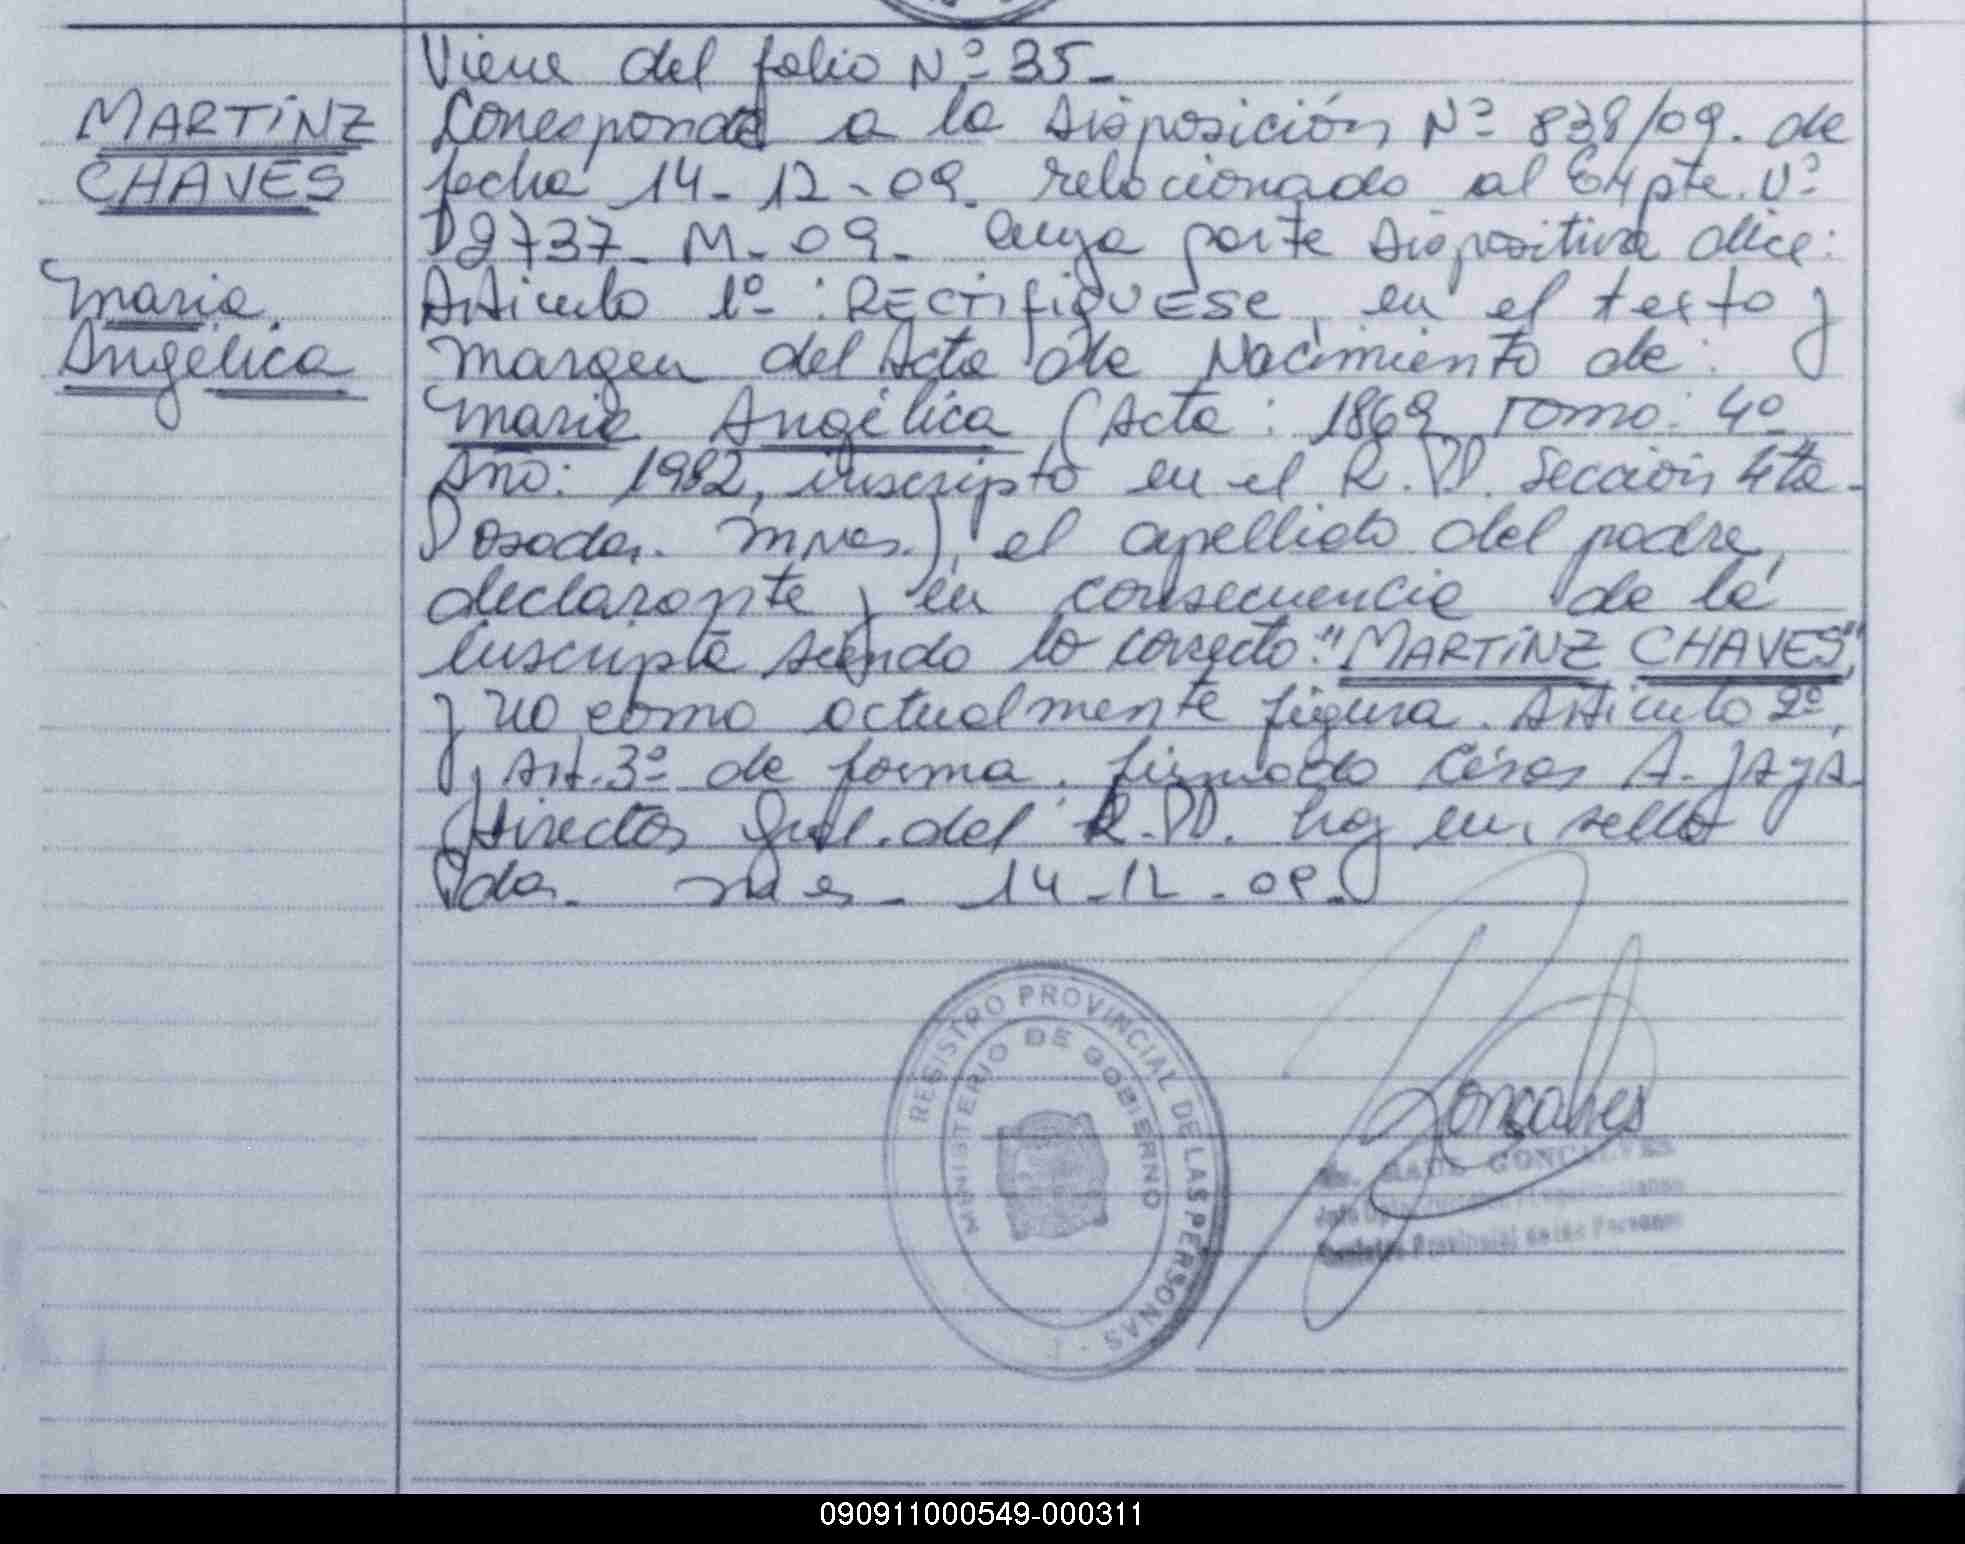 MARTiNZ
CHAVES
Maria
Angélica
Viene del folio Nº 35-
Corresponde a la Disposición Nº 838/09. de
fecha 14-12-09 relacionado al Expte. Nº
D2737-M-09- cuya parte Dispositiva dice:
Articulo 1º: RECTIFIQUESE, en el texto y
margen del Acta de Nacimiento de:
Maria Angélica (Acta: 1869 Tomo: 4º
Año: 1982, inscripto en el R.PP. Sección 4ta-
Posadas. Mnes.), el apellido del padre,
declarante y en consecuencia de la
inscripta siendo lo correcto: "MARTiNZ CHAVES",
y no como actualmente figura. Articulo 2º,
y Art. 3º de forma. firmado César A.
Director Gral. del R.PP. hay un sello
Pdas. Mnes- 14-12-09-
REGISTRO PROVINCIAL DE LAS PERSONAS
MINISTERIO DE GOBIERNO
Goncalves
GONCALVES
Registro Provincial de las Personas
090911000549-000311